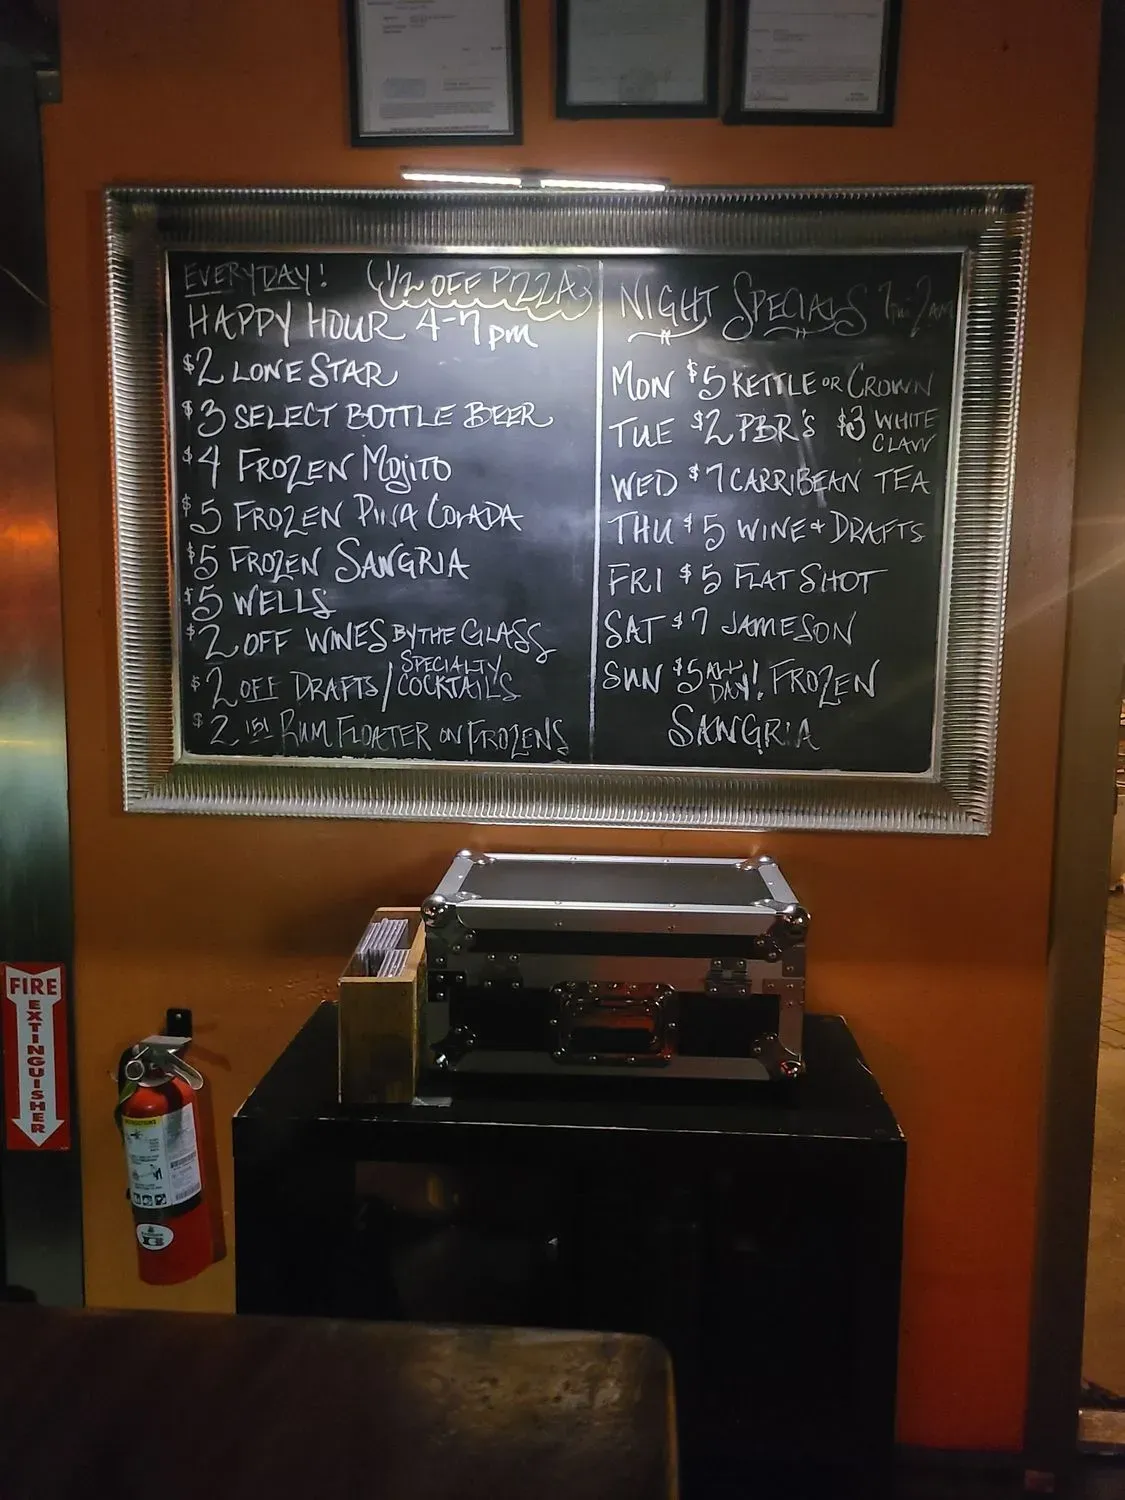 EVERYDAY! (1/2 OFF PIZZA)
HAPPY HOUR 4-7pm
$2 LONE STAR
$3 SELECT BOTTLE BEER
$4 FROZEN MOJITO
$5 FROZEN PINA COLADA
$5 FROZEN SANGRIA
$5 WELLS
$2 OFF WINES BY THE GLASS
$2 OFF DRAFTS/SPECIALTY COCKTAILS
$2 151 RUM FLOATER ON FROZENS
NIGHT SPECIALS 7pm-2AM
MON $5 KETTLE OR CROWN
TUE $2 PBR'S $3 WHITE CLAW
WED $7 CARRIBEAN TEA
THU $5 WINE + DRAFTS
FRI $5 FLAT SHOT
SAT $7 JAMESON
SUN $5 ALL DAY! FROZEN
SANGRIA
FIRE
EXTINGUISHER